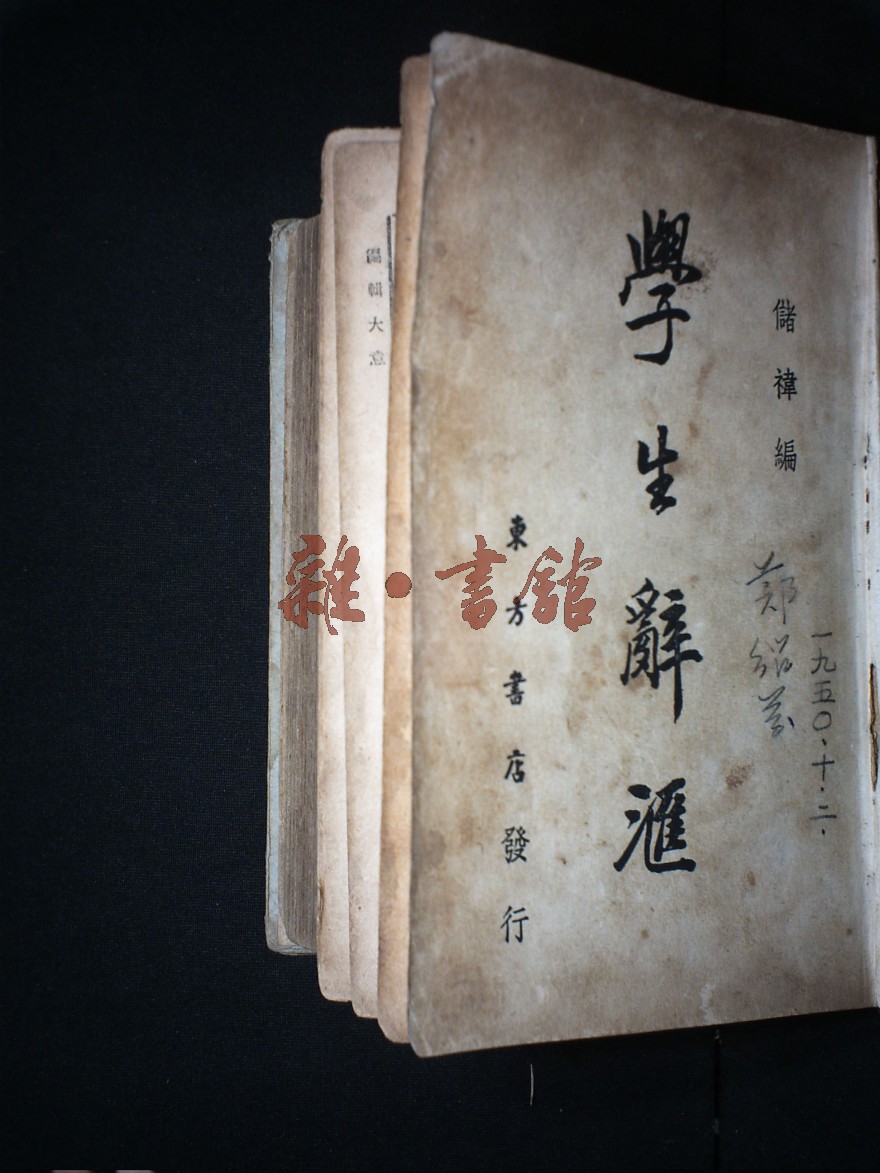 儲褘編
學生辭滙
東方書店發行
郑绍
一九五〇、十、二、
編輯大意
雜·書館